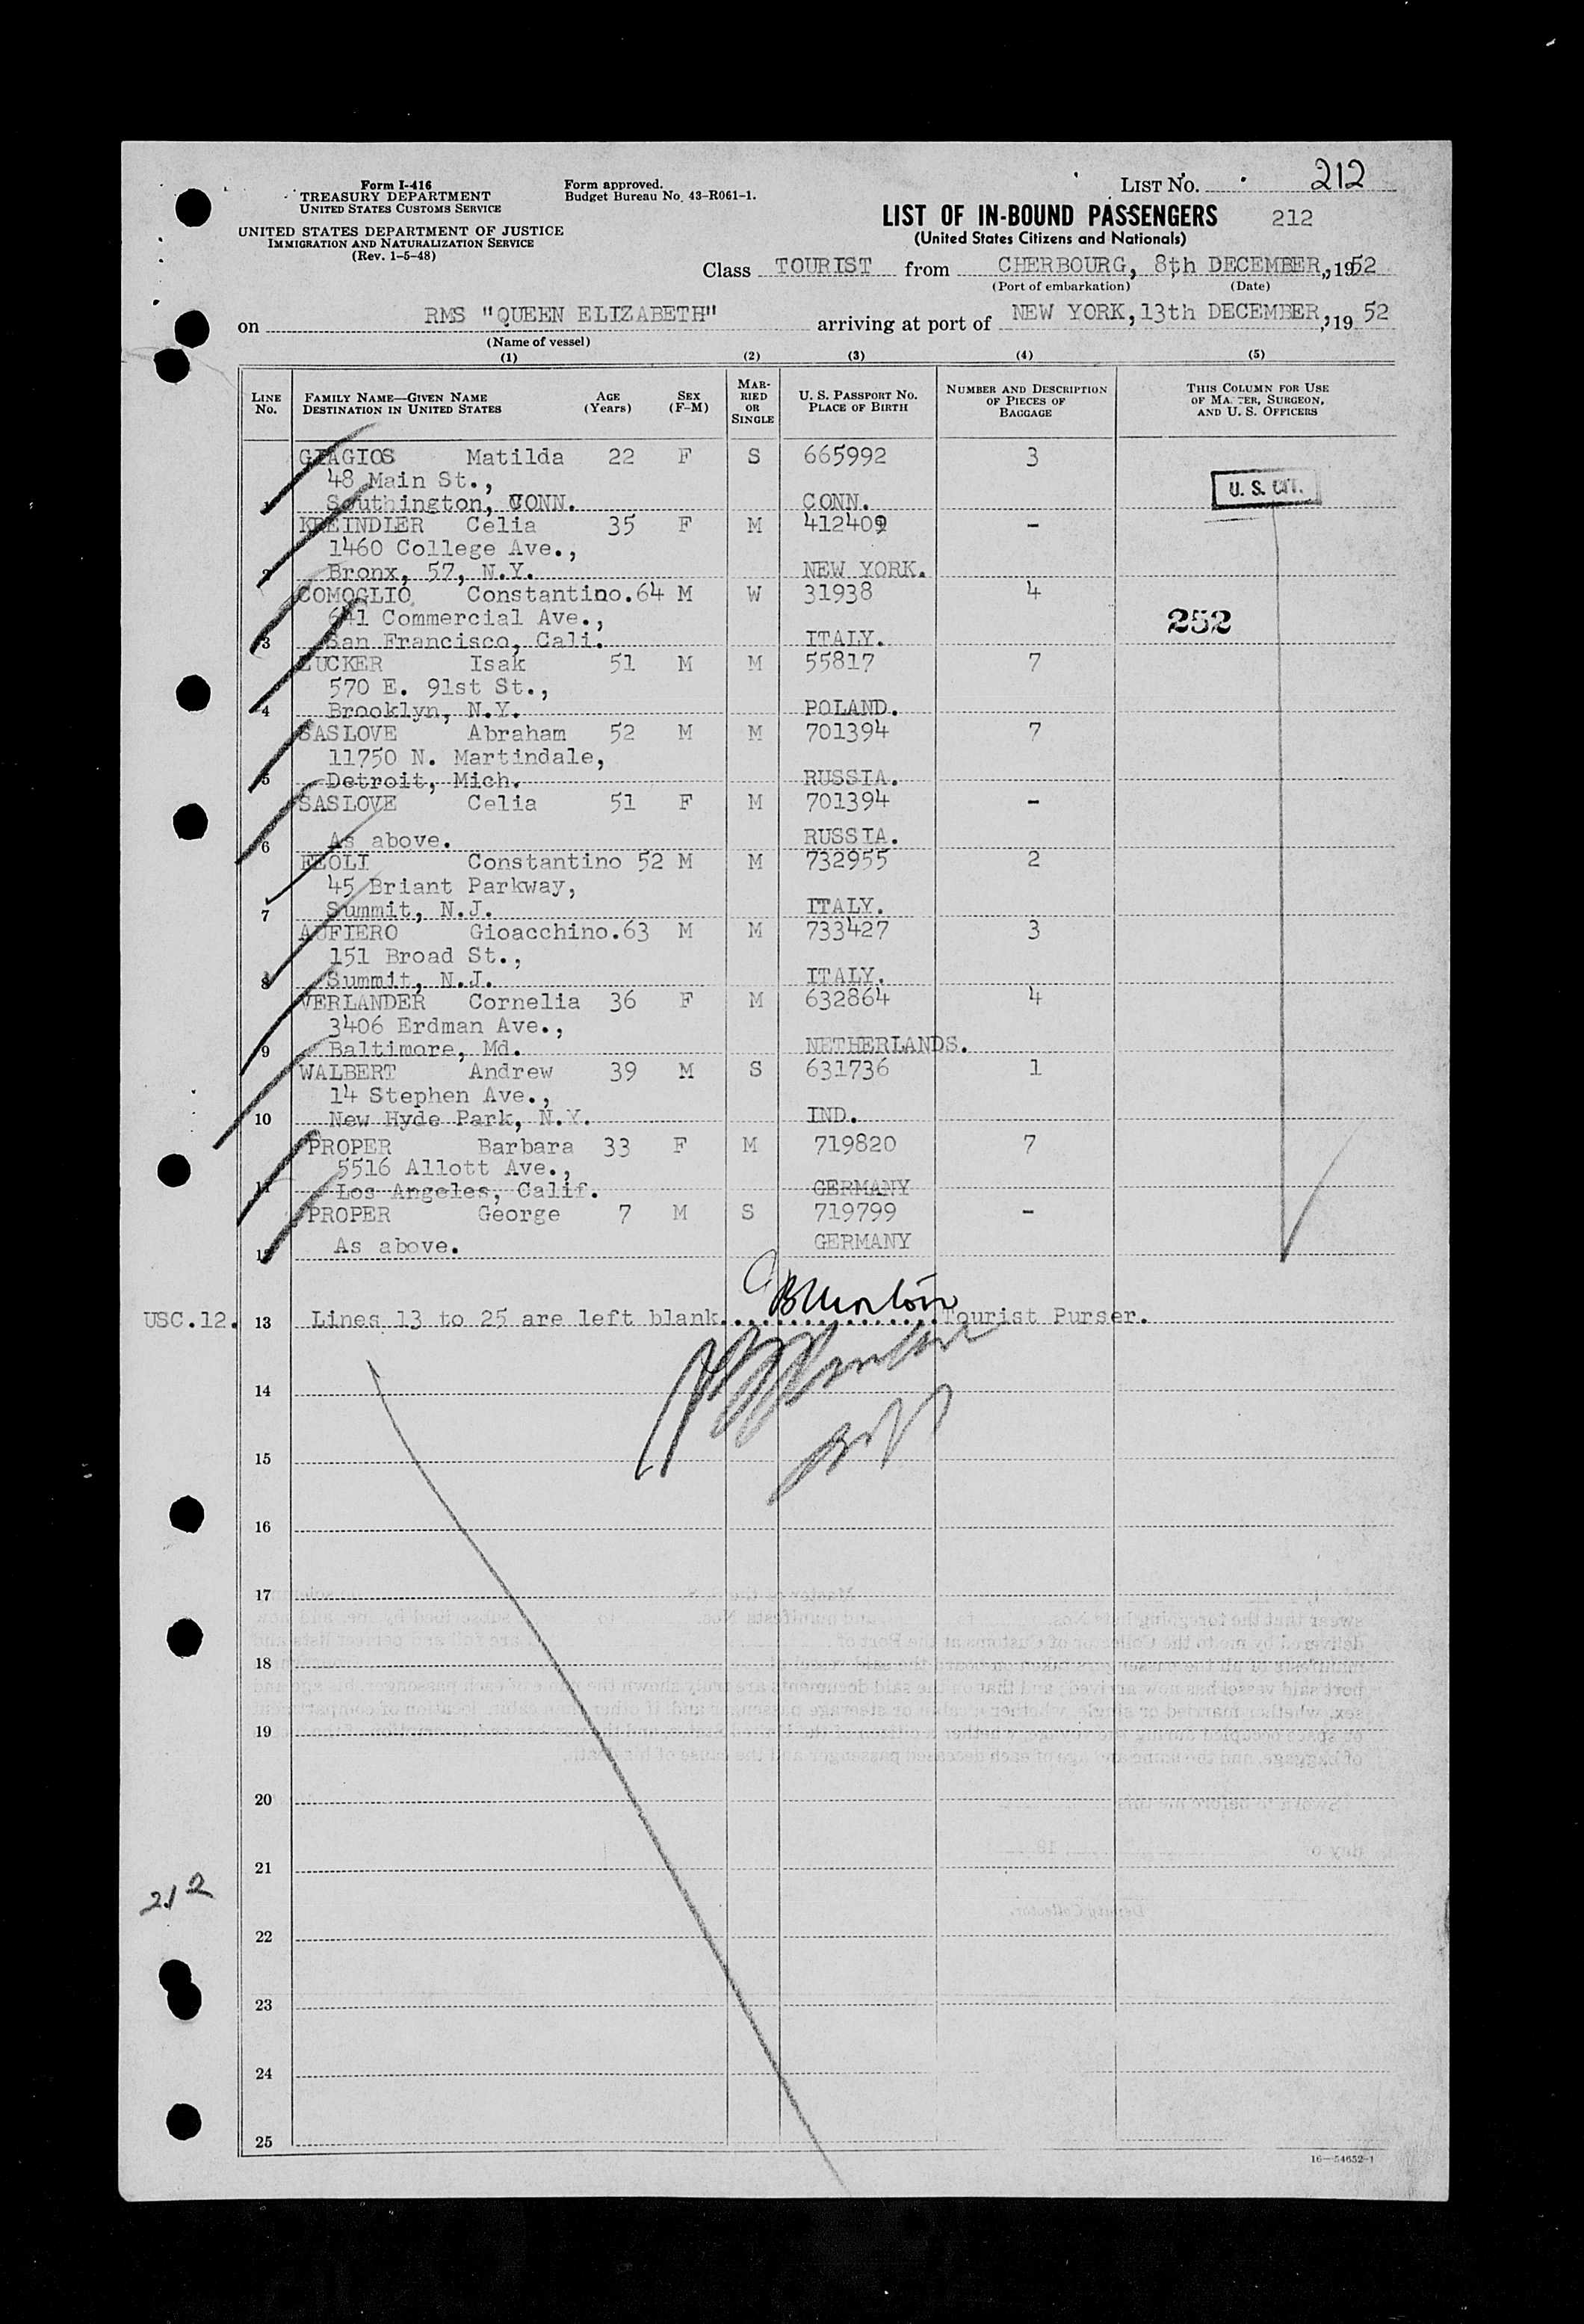 Form I-416
TREASURY DEPARTMENT
UNITED STATES CUSTOMS SERVICE
UNITED STATES DEPARTMENT OF JUSTICE
IMMIGRATION AND NATURALIZATION SERVICE
(Rev. 1-5-48)
Form approved.
Budget Bureau No. 43-R061-1.
LIST NO. 212
LIST OF IN-BOUND PASSENGERS 212
(United States Citizens and Nationals)
Class TOURIST from CHERBOURG, 8th DECEMBER, 1952
(Port of embarkation) (Date)
on RMS "QUEEN ELIZABETH" arriving at port of NEW YORK, 13th DECEMBER, 19 52
(Name of vessel)
(1) (2) (3) (4) (5)
LINE NO. FAMILY NAME—GIVEN NAME DESTINATION IN UNITED STATES AGE (Years) SEX (F-M) MARRIED OR SINGLE U. S. PASSPORT NO. PLACE OF BIRTH NUMBER AND DESCRIPTION OF PIECES OF BAGGAGE THIS COLUMN FOR USE OF MASTER, SURGEON, AND U. S. OFFICERS
GIAGIOS Matilda 22 F S 665992 3
48 Main St.,
1 Southington, CONN. CONN. U. S. CIT.
KREINDLER Celia 35 F M 412409 -
1460 College Ave.,
2 Bronx, 57, N.Y. NEW YORK.
COMOGLIO Constantino. 64 M W 31938 4
641 Commercial Ave., 252
3 San Francisco, Cali. ITALY.
ZUCKER Isak 51 M M 55817 7
570 E. 91st St.,
4 Brooklyn, N.Y. POLAND.
SASLOVE Abraham 52 M M 701394 7
11750 N. Martindale,
5 Detroit, Mich. RUSSIA.
SASLOVE Celia 51 F M 701394 -
6 As above. RUSSIA.
FEOLI Constantino 52 M M 732955 2
45 Briant Parkway,
7 Summit, N.J. ITALY.
AUFIERO Gioacchino. 63 M M 733427 3
151 Broad St.,
8 Summit, N.J. ITALY.
VERLANDER Cornelia 36 F M 632864 4
3406 Erdman Ave.,
9 Baltimore, Md. NETHERLANDS.
WALBERT Andrew 39 M S 631736 1
14 Stephen Ave.,
10 New Hyde Park, N.Y. IND.
PROPER Barbara 33 F M 719820 7
5516 Allott Ave.,
11 Los Angeles, Calif. GERMANY
PROPER George 7 M S 719799 -
12 As above. GERMANY
USC.12. 13 Lines 13 to 25 are left blank................Tourist Purser.
14
15
16
17
18
19
20
21
212
22
23
24
25
16—54652-1